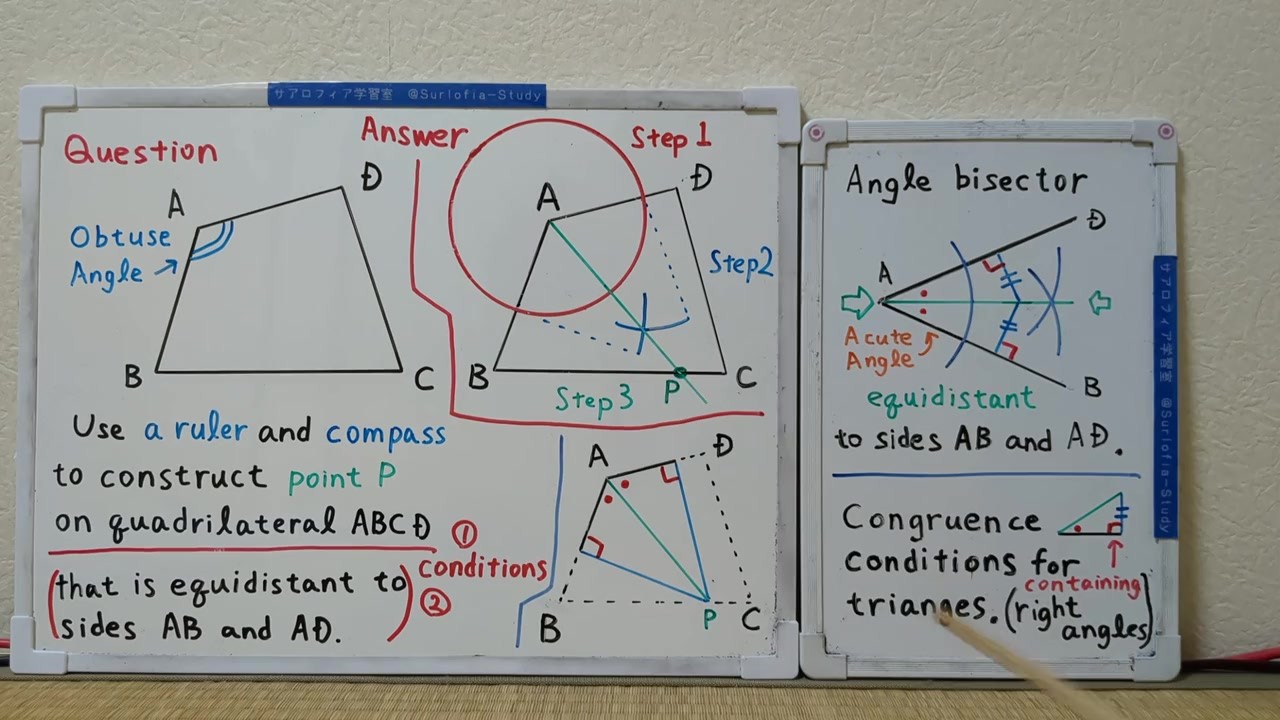 サアロフィア学習室 @Surlofia-Study
Question
A
D
Obtuse
Angle
B
C
Use a ruler and compass
to construct point P
on quadrilateral ABCD ①
(that is equidistant to
sides AB and AD.)
conditions
②
Answer
Step 1
A
D
Step2
B
Step3
P
C
A
D
B
P
C
Angle bisector
D
A
Acute
Angle
B
equidistant
to sides AB and AD.
Congruence
conditions for
containing
(right
angles)
サアロフィア学習室 @Surlofia-Study